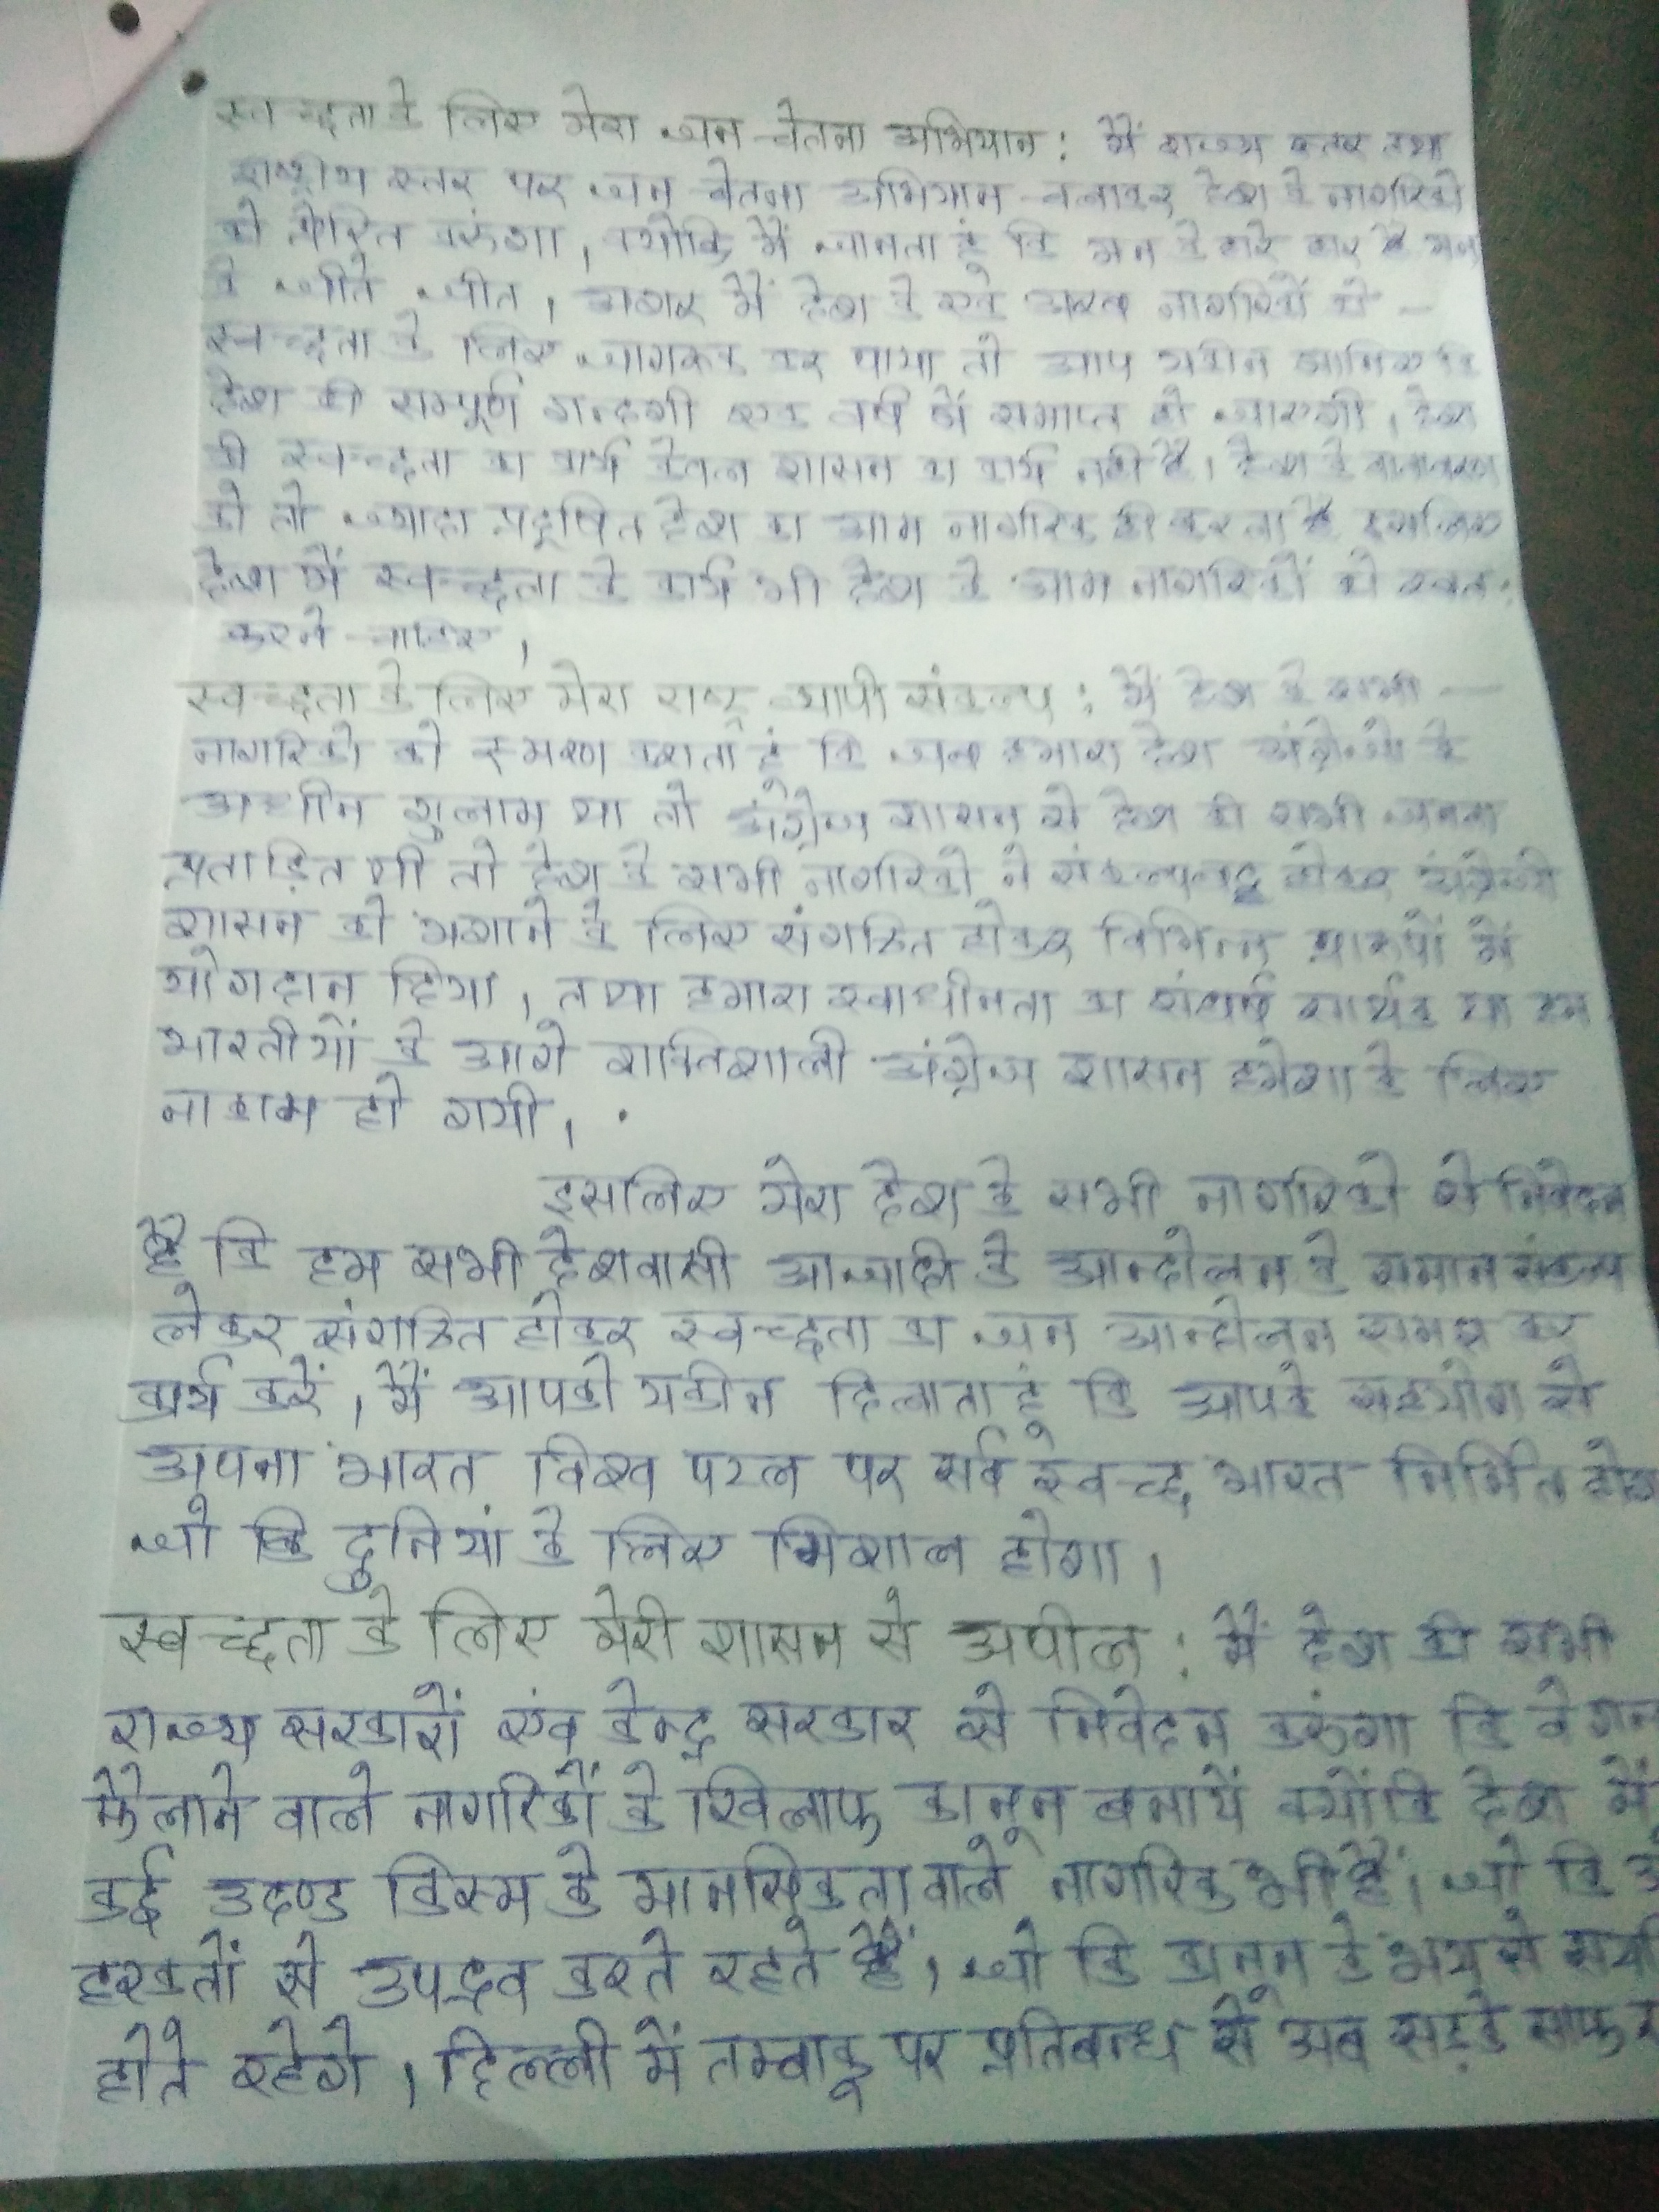 स्वच्छता के लिए मेरा जन चेतना अभियान : मैं राज्य स्तर तथा
राष्ट्रीय स्तर पर जन चेतना अभियान चलाकर देश के नागरिको
को प्रेरित करुंगा, क्योकि मैं जानता हूं कि मन के हारे हार है मन
के जीते जीत, अगर मैं देश के नागरिकों को —
स्वच्छता के लिए जागरुक कर पाया तो आप यकीन मानिए कि
देश की सम्पूर्ण गन्दगी एक वर्ष में समाप्त हो जाएगी, देश
की स्वच्छता का कार्य केवल शासन का कार्य नही है, देश के वातावरण
को तो ज्यादा प्रदूषित देश का आम नागरिक ही करता है इसलिए
देश में स्वच्छता के कार्य भी देश के आम नागरिकों को स्वतः
करने चाहिए,
स्वच्छता के लिए मेरा राष्ट्र व्यापी संकल्प : मैं देश के सभी —
नागरिको को स्मरण कराता हूं कि जब हमारा देश अंग्रेजो के
अधीन गुलाम था तो अंग्रेज शासन से देश की सभी जनता
प्रताड़ित थी तो देश के सभी नागरिको ने संकल्पबद्ध होकर अंग्रेजी
शासन को भगाने के लिए संगठित होकर विभिन्न प्रारुपों में
योगदान दिया, तथा हमारा स्वाधीनता का संघर्ष सार्थक था हम
भारतीयों के आगे शक्तिशाली अंग्रेज शासन हमेशा के लिए
नाकाम हो गयी,
इसलिए मेरा देश के सभी नागरिको से निवेदन
है कि हम सभी देशवासी आजादी के आन्दोलन के समान संकल्प
लेकर संगठित होकर स्वच्छता का जन आन्दोलन समझ कर
कार्य करें, मैं आपको यकीन दिलाता हूं कि आपके सहयोग से
अपना भारत विश्व पटल पर सर्व स्वच्छ भारत निर्मित होगा
जो कि दुनियां के लिए मिशाल होगा,
स्वच्छता के लिए मेरी शासन से अपील : मैं देश की सभी
राज्य सरकारों एंव केन्द्र सरकार से निवेदन करुंगा कि वे
फैलाने वाले नागरिकों के खिलाफ कानून बनायें क्योंकि देश में
कई उदण्ड किस्म के मानसिकता वाले नागरिक भी हैं, जो कि
हरकतों से उपद्रव करते रहते हैं, जो कि कानून के भय से
होते रहेगे, दिल्ली में तम्बाकू पर प्रतिबन्ध से अब सड़के साफ